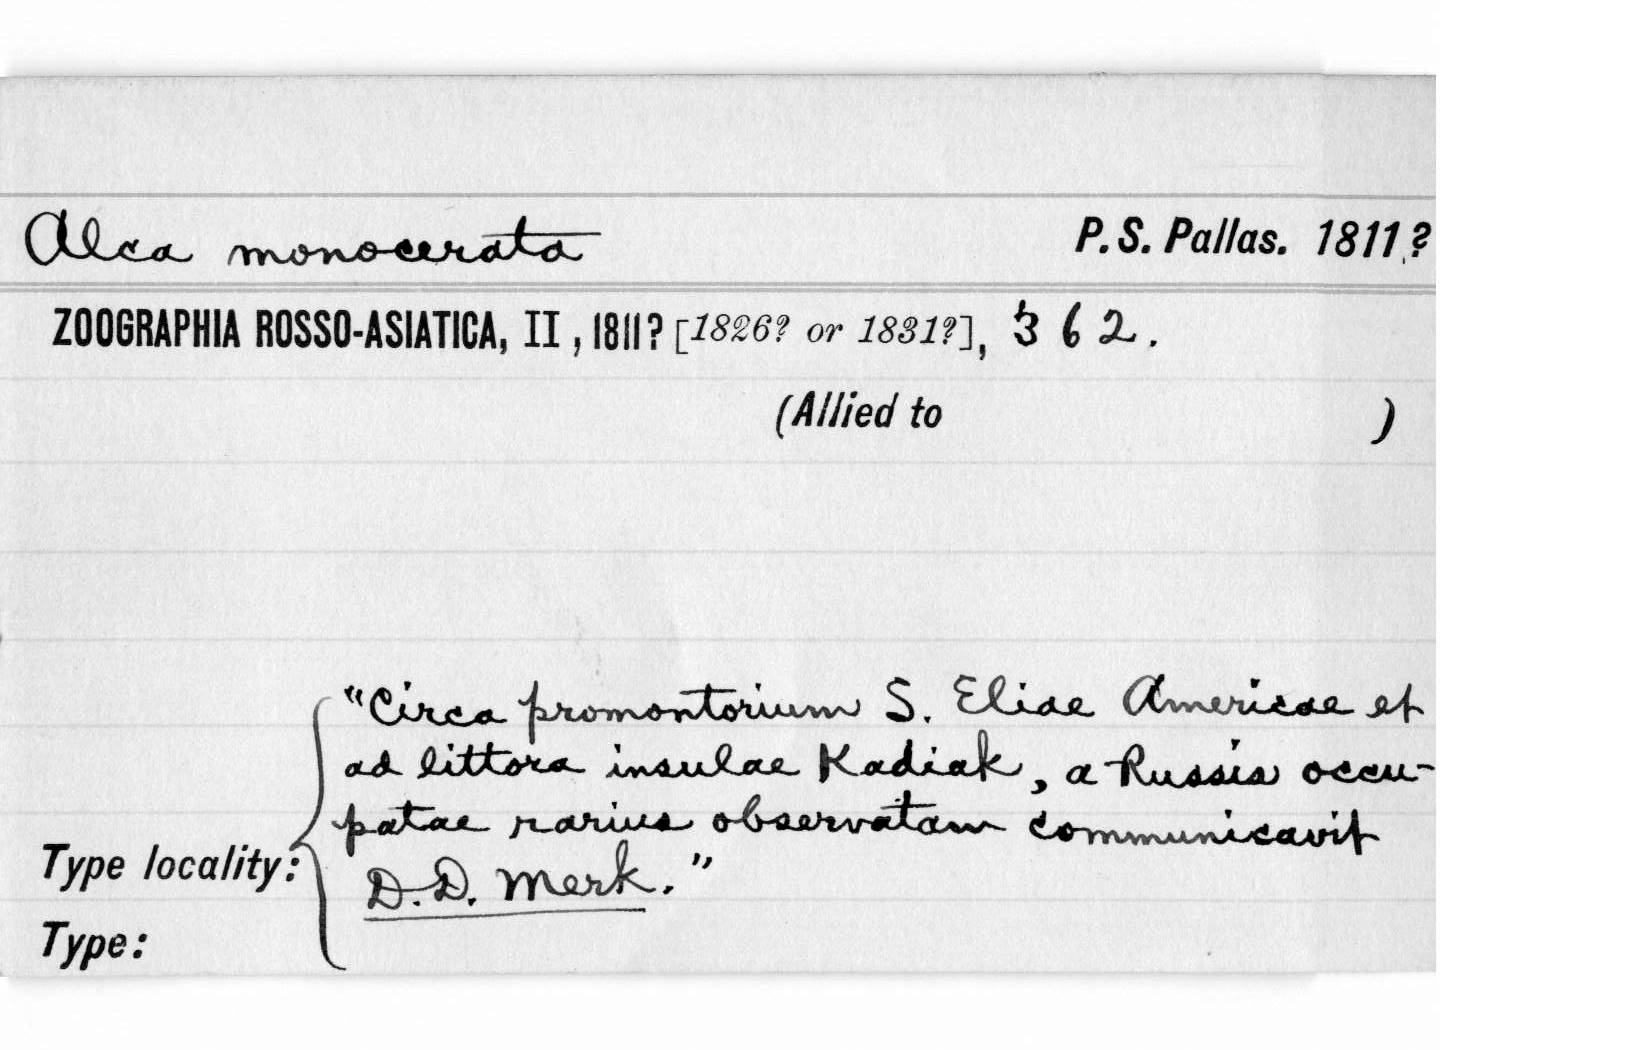 Alca monocerata P. S. Pallas. 1811?
ZOOGRAPHIA ROSSO-ASIATICA, II, 1811? [1826? or 1831?], 362.
(Allied to )
"Circa promontorium S. Eliae Americae et
ad littora insulae Kadiak, a Russis occu-
patae rarius observatam communicavit
Type locality: D.D. Merk."
Type: